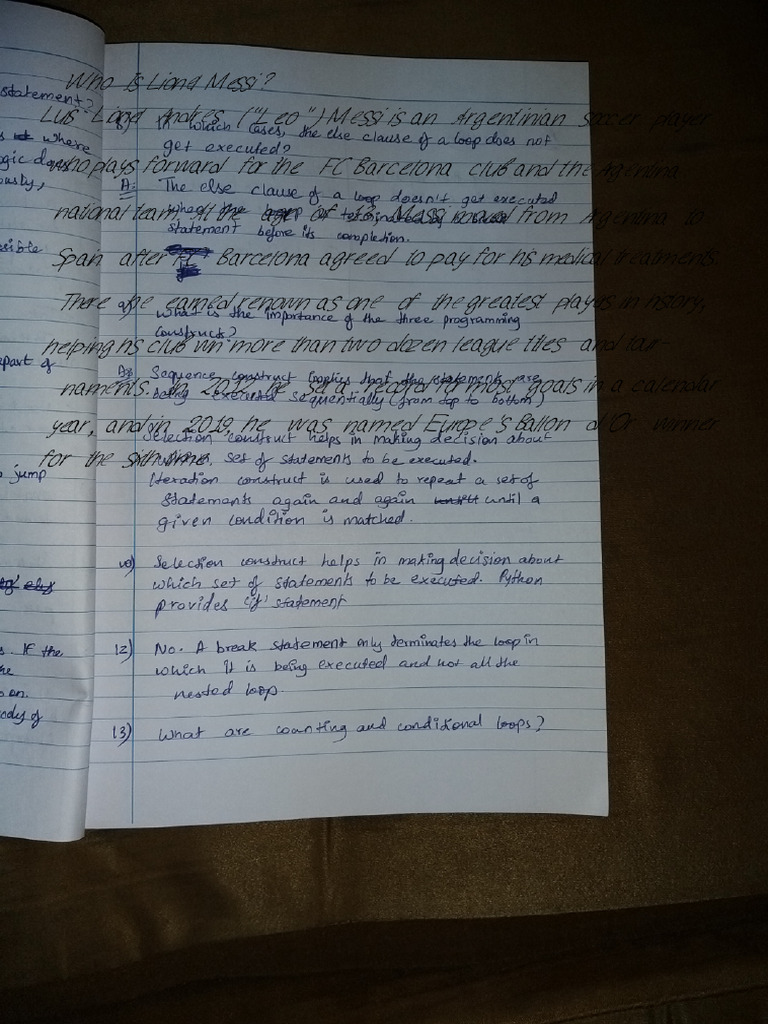 Who Is Lionel Messi?
Luis Lionel Andres ("Leo") Messi is an Argentinian soccer player
who plays forward for the FC Barcelona club and the Argentina
national team. At the age of 13, Messi moved from Argentina to
Spain after FC Barcelona agreed to pay for his medical treatments.
There he earned renown as one of the greatest players in history,
helping his club win more than two dozen league titles and tour-
naments. In 2012, he set a record for most goals in a calendar
year, and in 2019, he was named Europe's Ballon d'Or winner
for the sixth time.
statement?
where
ously,
part of
jump
If the
on.
ody of
In which cases, the else clause of a loop does not
get executed?
A: The else clause of a loop doesn't get executed
when the loop is terminated by
statement before its completion.
What is the importance of the three programming
construct?
A: Sequence construct that the statements are
being executed sequentially (from top to bottom)
Selection construct helps in making decision about
set of statements to be executed.
Iteration construct is used to repeat a set of
Statements again and again until a
given condition is matched.
10) Selection construct helps in making decision about
which set of statements to be executed. Python
provides 'if' statement
12) No. A break statement only terminates the loop in
which it is being executed and not all the
nested loop.
13) What are counting and conditional loops?